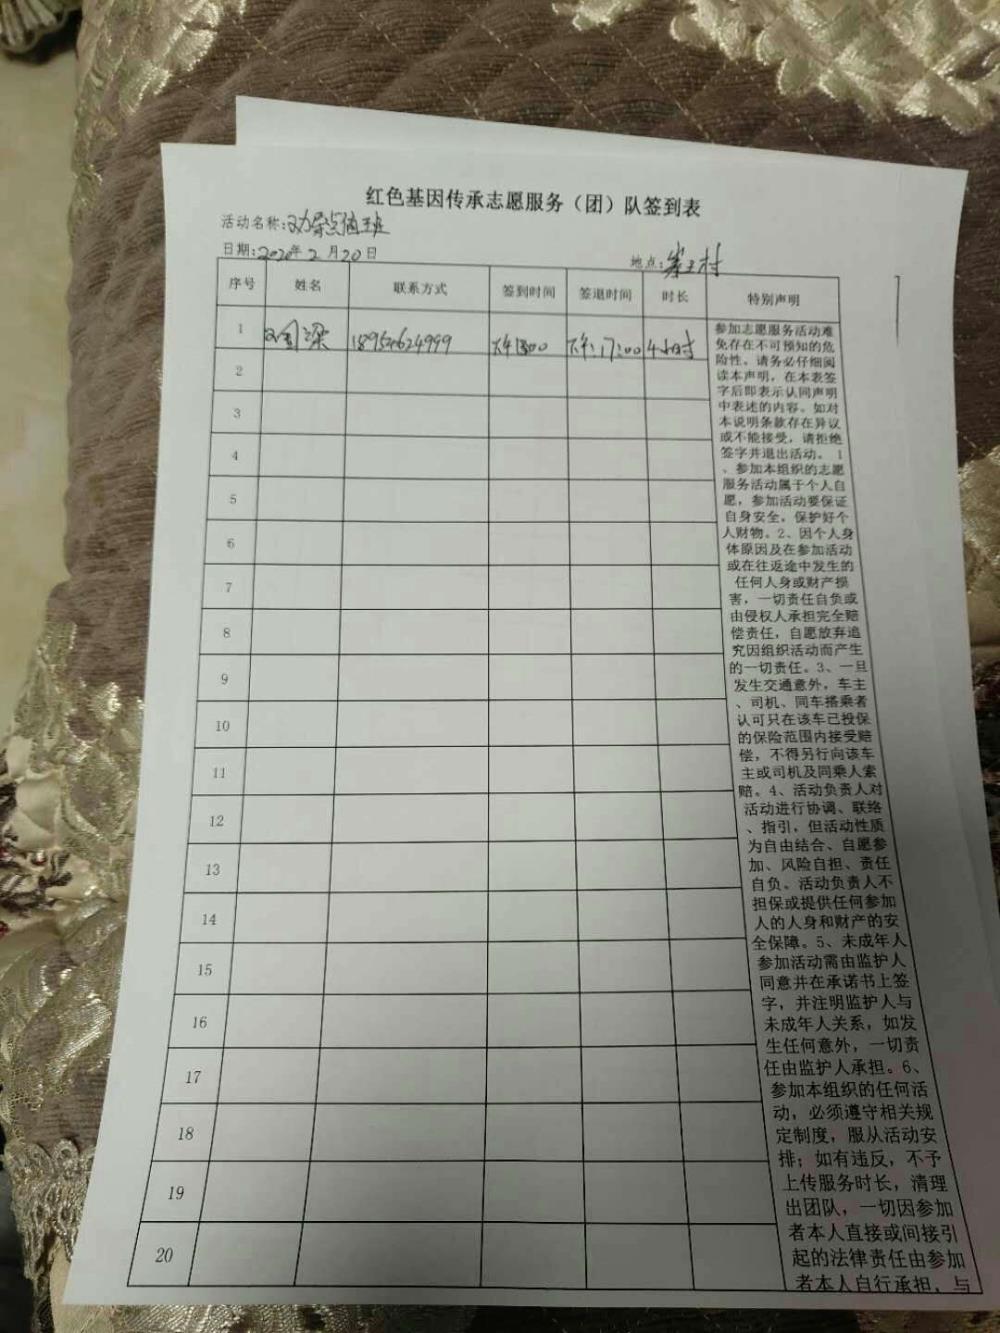 红色基因传承志愿服务（团）队签到表
活动名称:劝导点值班
日期:2020年2月20日
地点:村
序号 姓名 联系方式 签到时间 签退时间 时长 特别声明
1 18952624999 下午13:00 下午:17:00 4小时
2
3
4
5
6
7
8
9
10
11
12
13
14
15
16
17
18
19
20
参加志愿服务活动难
免存在不可预知的危
险性。请务必仔细阅
读本声明，在本表签
字后即表示认同声明
中表述的内容。如对
本说明条款存在异议
或不能接受，请拒绝
签字并退出活动。 1
、参加本组织的志愿
服务活动属于个人自
愿，参加活动要保证
自身安全，保护好个
人财物。2、因个人身
体原因及在参加活动
或在往返途中发生的
任何人身或财产损
害，一切责任自负或
由侵权人承担完全赔
偿责任，自愿放弃追
究因组织活动而产生
的一切责任。3、一旦
发生交通意外，车主
、司机、同车搭乘者
认可只在该车已投保
的保险范围内接受赔
偿，不得另行向该车
主或司机及同乘人索
赔。4、活动负责人对
活动进行协调、联络
、指引，但活动性质
为自由结合、自愿参
加、风险自担、责任
自负。活动负责人不
担保或提供任何参加
人的人身和财产的安
全保障。5、未成年人
参加活动需由监护人
同意并在承诺书上签
字，并注明监护人与
未成年人关系，如发
生任何意外，一切责
任由监护人承担。6、
参加本组织的任何活
动，必须遵守相关规
定制度，服从活动安
排；如有违反，不予
上传服务时长，清理
出团队，一切因参加
者本人直接或间接引
起的法律责任由参加
者本人自行承担，与